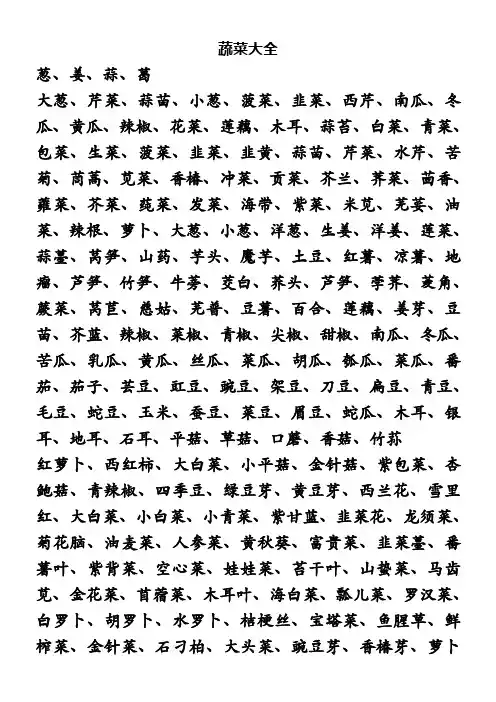 蔬菜大全
葱、姜、蒜、葛
大葱、芹菜、蒜苗、小葱、菠菜、韭菜、西芹、南瓜、冬
瓜、黄瓜、辣椒、花菜、莲藕、木耳、蒜苔、白菜、青菜、
包菜、生菜、菠菜、韭菜、韭黄、蒜苗、芹菜、水芹、苦
菊、茼蒿、苋菜、香椿、冲菜、贡菜、芥兰、荠菜、茴香、
蕹菜、芥菜、莼菜、发菜、海带、紫菜、米苋、芫荽、油
菜、辣根、萝卜、大葱、小葱、洋葱、生姜、洋姜、莲菜、
蒜薹、莴笋、山药、芋头、魔芋、土豆、红薯、凉薯、地
瘤、芦笋、竹笋、牛蒡、茭白、荞头、芦笋、荸荠、菱角、
蕨菜、莴苣、慈姑、芜菁、豆薯、百合、莲藕、姜芽、豆
苗、芥蓝、辣椒、菜椒、青椒、尖椒、甜椒、南瓜、冬瓜、
苦瓜、乳瓜、黄瓜、丝瓜、菜瓜、胡瓜、瓠瓜、菜瓜、番
茄、茄子、芸豆、豇豆、豌豆、架豆、刀豆、扁豆、青豆、
毛豆、蛇豆、玉米、蚕豆、菜豆、眉豆、蛇瓜、木耳、银
耳、地耳、石耳、平菇、草菇、口蘑、香菇、竹荪
红萝卜、西红柿、大白菜、小平菇、金针菇、紫包菜、杏
鲍菇、青辣椒、四季豆、绿豆芽、黄豆芽、西兰花、雪里
红、大白菜、小白菜、小青菜、紫甘蓝、韭菜花、龙须菜、
菊花脑、油麦菜、人参菜、黄秋葵、富贵菜、韭菜薹、番
薯叶、紫背菜、空心菜、娃娃菜、苔干叶、山蛰菜、马齿
苋、金花菜、苜蓿菜、木耳叶、海白菜、瓢儿菜、罗汉菜、
白罗卜、胡罗卜、水罗卜、桔梗丝、宝塔菜、鱼腥草、鲜
榨菜、金针菜、石刁柏、大头菜、豌豆芽、香椿芽、萝卜